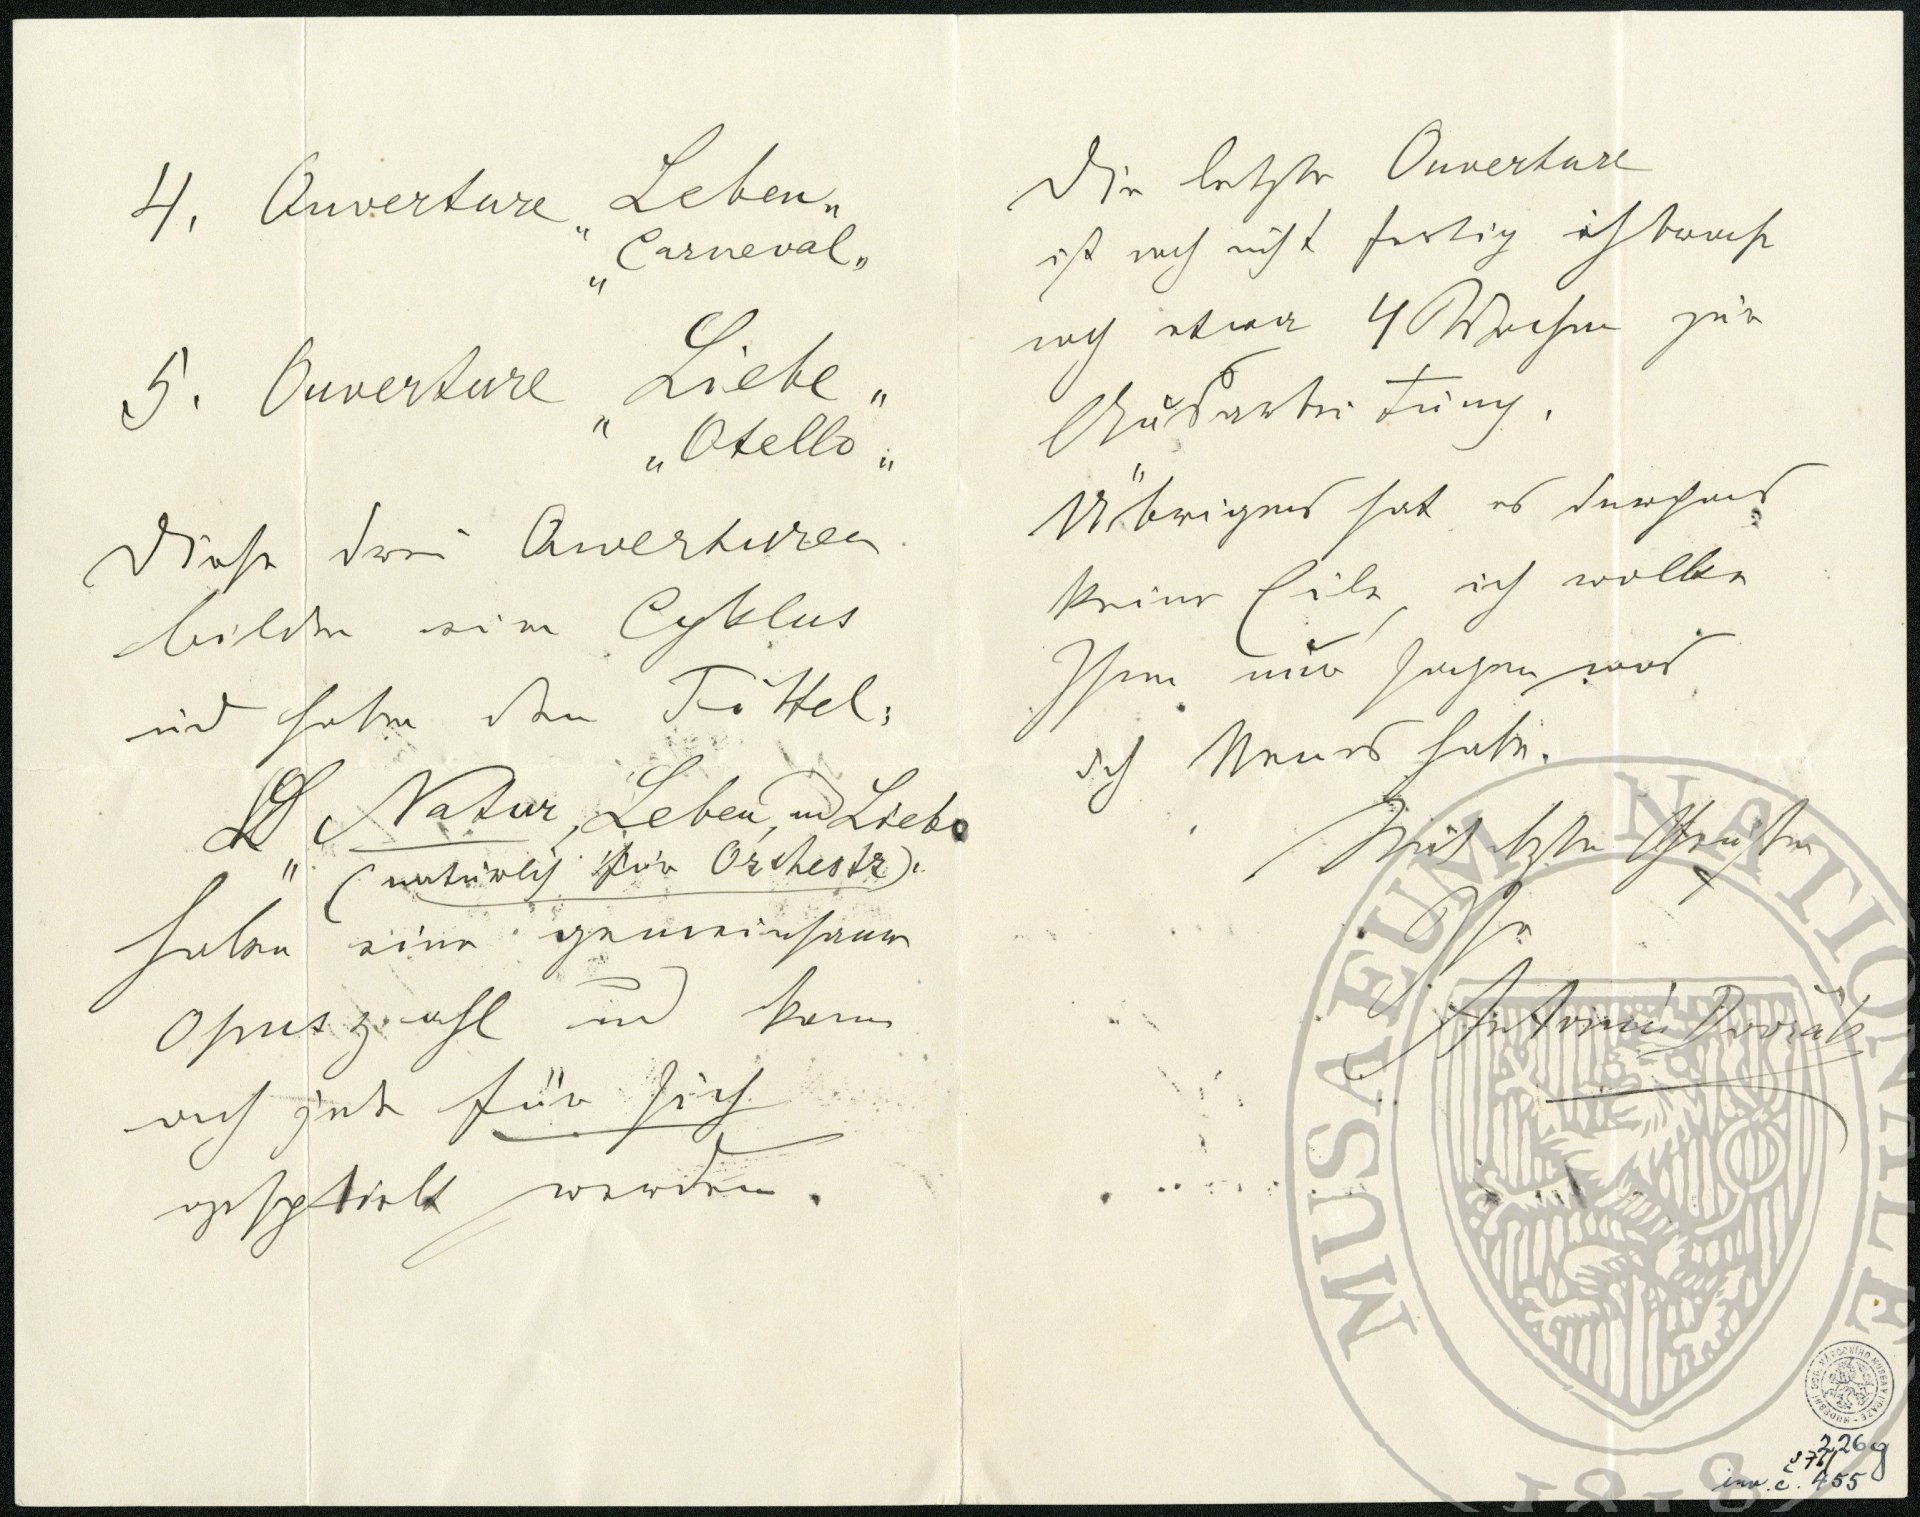 4. Ouverture „Leben"
„Carneval"
5. Ouverture „Liebe"
„Otello"
Diese drei Ouverturen
bilden einen Cyklus
und haben den Tittel:
„Natur, Leben, und Liebe
(natürlich für Orchestr).
haben eine gemeinsame
Opuszahl und kann
auch jede für sich
gespielt werden.
Die letzte Ouverture
ist noch nicht fertig ich brauche
noch etwa 4 Wochen zur
Ausarbeitung.
Übrigens hat es durchaus
keine Eile, ich wollte
Ihnen nur sagen was
ich Neues habe.
Grüße
Ihr
Antonín Dvořák
MUSAEUM NATIONALE
1818
226g
inv. č. 455